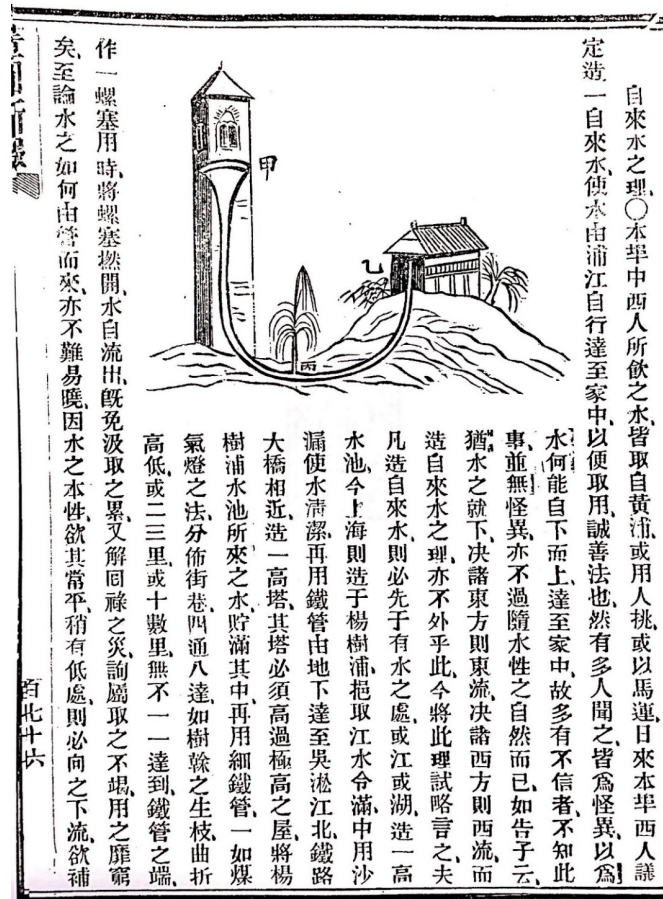 自來水之理、〇本埠中西人所飲之水、皆取自黃浦、或用人挑、或以馬運、日來本埠西人議
定造一自來水、使水由浦江自行達至家中、以便取用、誠善法也、然有多人聞之、皆爲怪異、以爲
水何能自下而上、達至家中、故多有不信者、不知此
事、並無怪異、亦不過隨水性之自然而已、如告子云、
猶水之就下、决諸東方則東流、决諸西方則西流、而
造自來水之理、亦不外乎此、今將此理試略言之、夫
凡造自來水、則必先于有水之處、或江或湖、造一高
水池、今上海則造于楊樹浦、挹取江水令滿、中用沙
漏使水清潔、再用鐵管由地下達至吳淞江北鐵路
大橋相近、造一高塔、其塔必須高過極高之屋、將楊
樹浦水池所來之水、貯滿其中、再用細鐵管、一如煤
氣燈之法、分佈街巷、四通八達、如樹榦之生枝、曲折
高低、或二三里、或十數里、無不一一達到、鐵管之端、
甲
乙
丙
作一螺塞、用時、將螺塞撚開、水自流出、旣免汲取之累、又解回祿之災、詢屬取之不竭、用之靡窮
矣、至論水之如何由管而來、亦不難易曉、因水之本性、欲其當平、稍有低處、則必向之下流、欲補
百七十六